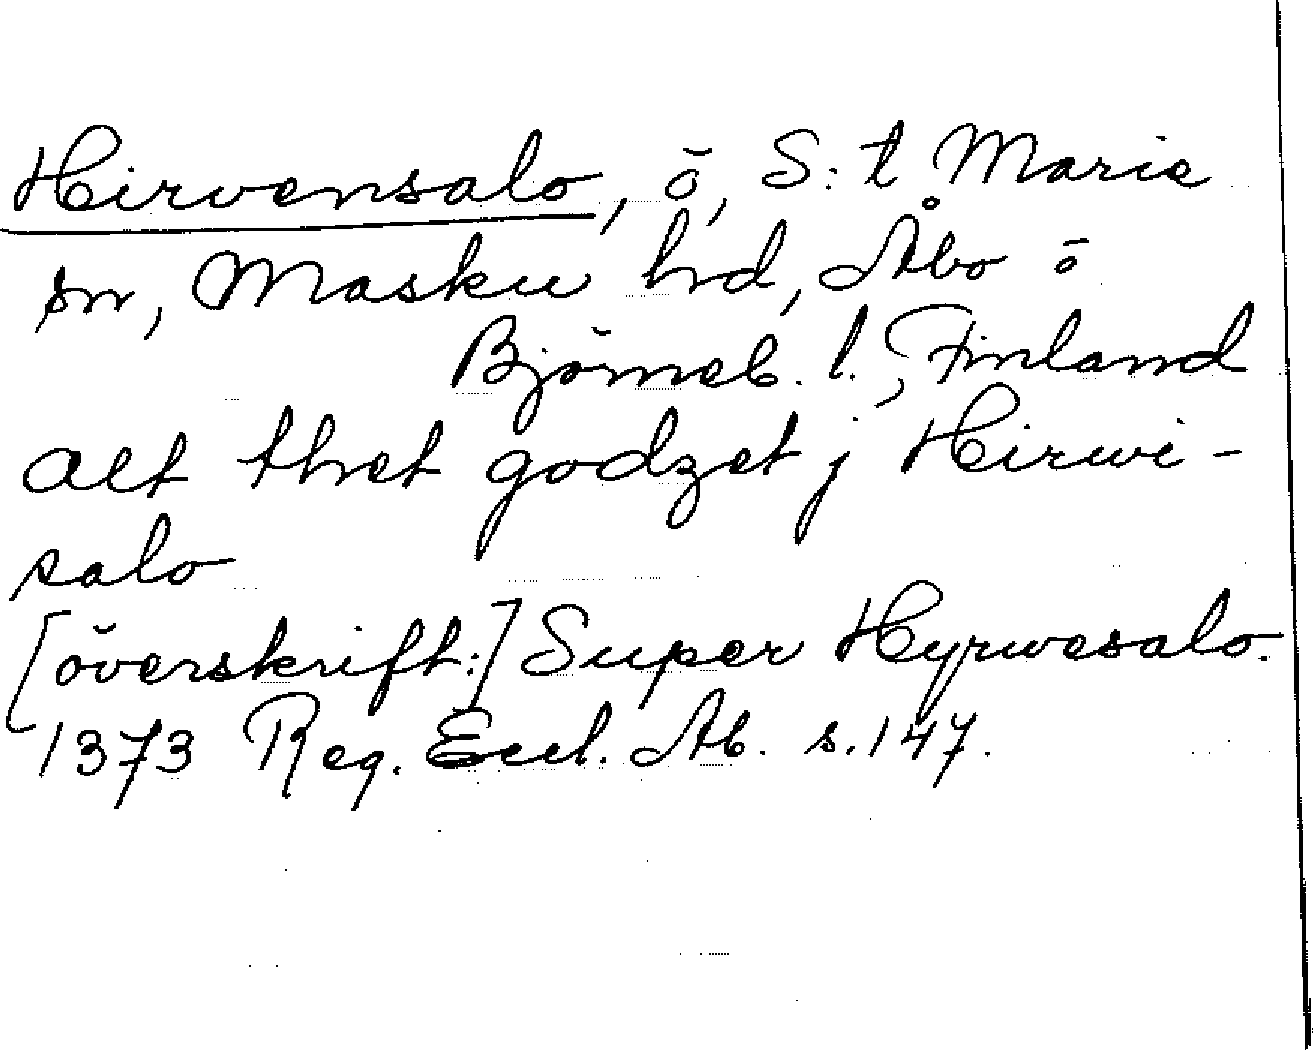 Hirvensalo, ö, S:t Marie
sn, Masku hrd, Åbo o
Björneb. l., Finland
alt thet godzet j Hirwi-
salo
[överskrift:] Super Hyrwesalo.
1373 Reg. Eccl. Ab. s. 147.